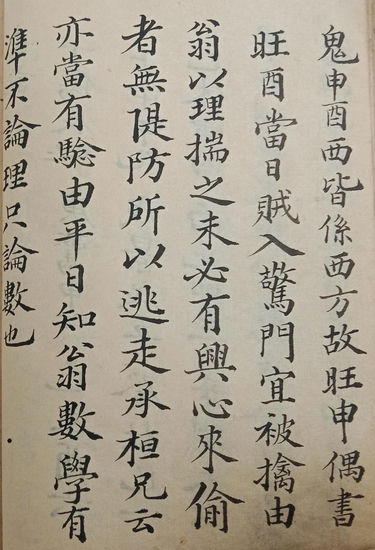 鬼申酉西皆係西方故旺申偶書
旺酉當日賊入驚門宜被擒由
翁以理揣之未必有興心來偷
者無隄防所以逃走承桓兄云
亦當有驗由平日知翁數學有
準不論理只論數也